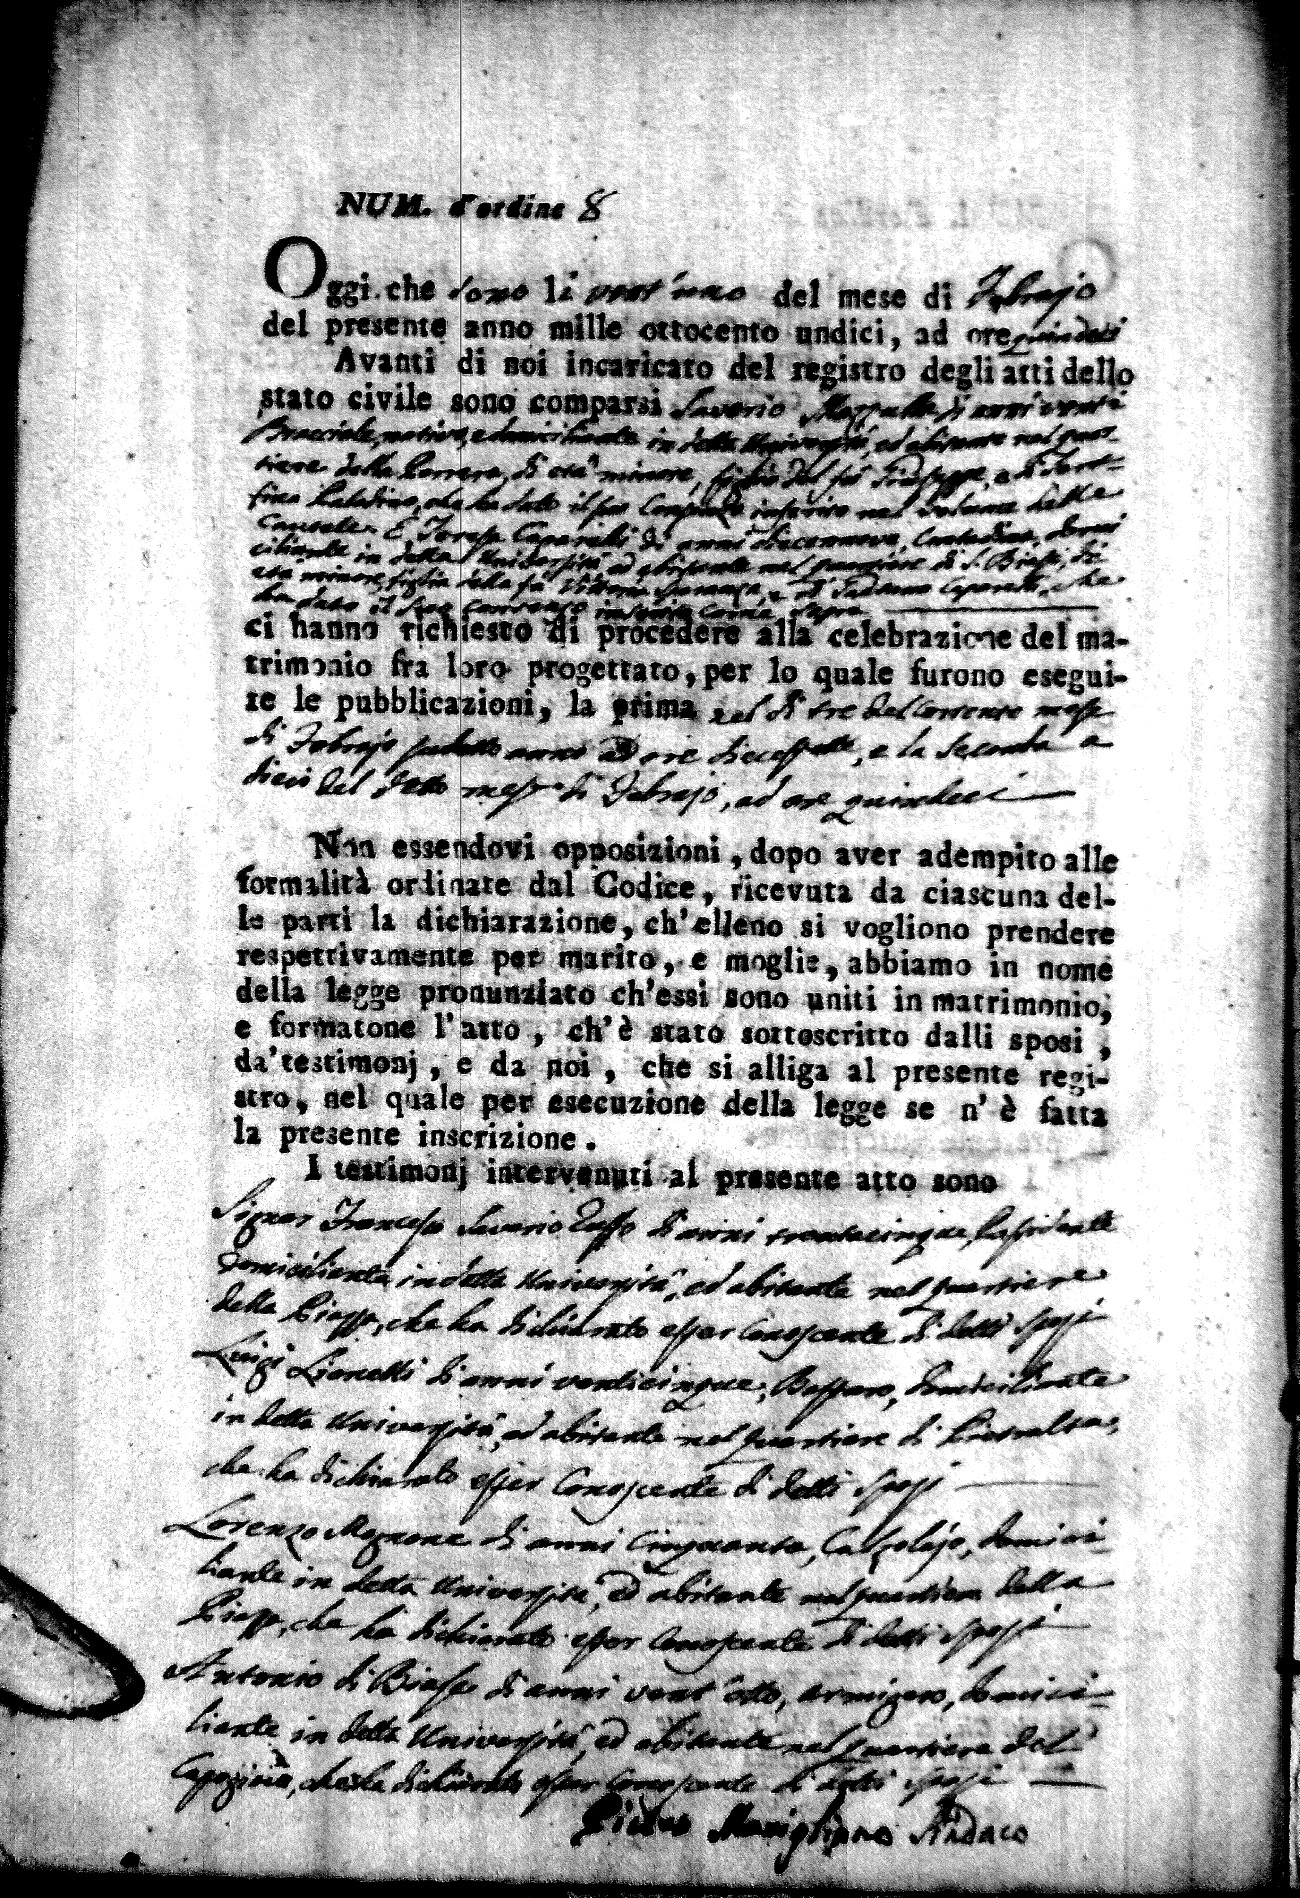 NUM. d'ordine 8
Oggi che sono li vent'uno del mese di Febrajo
del presente anno mille ottocento undici, ad ore quindeci
Avanti di noi incaricato del registro degli atti dello
stato civile sono comparsi Saverio di anni venti
Bracciale, nativo, e domiciliante in detta Università, ed abitante nel quar-
tiere della di età minore, figlio del fu Giuseppe, e di
che ha dato il suo Consenso inserito nel Volume delle
Cautele. E Teresa Caparelli di anni diecennove, Contadina, domi
ciliante in detta Università ed abitante nel quartiere di S. Biase, di
età minore, figlia della fu Vittoria e di Caparelli, che
ha dato il suo consenso inserito come sopra
ci hanno richiesto di procedere alla celebrazione del ma-
trimonio fra loro progettato, per lo quale furono esegui-
te le pubblicazioni, la prima nel di tre del corrente mese
di Febrajo sudetto anno ad ore diecessette, e la seconda a
dieci del detto mese di Febrajo, ad ore quindeci
Non essendovi opposizioni, dopo aver adempito alle
formalità ordinate dal Codice, ricevuta da ciascuna del-
le parti la dichiarazione, ch'elleno si vogliono prendere
respettivamente per marito, e moglie, abbiamo in nome
della legge pronunziato ch'essi sono uniti in matrimonio,
e formatone l'atto, ch'è stato sottoscritto dalli sposi,
da'testimonj, e da noi, che si alliga al presente regi-
stro, nel quale per esecuzione della legge se n'è fatta
la presente inscrizione.
I testimonj intervenuti al presente atto sono
Signor Francesco Saverio di anni trentacinque,
domiciliante in detta Università, ed abitante nel quartiere
della Piazza, che ha dichiarato esser Conoscente di detti sposi
Luigi Lionetti di anni venticinque, domiciliante
in detta Università, ed abitante nel quartiere di Pietralta,
che ha dichiarato esser Conoscente di detti sposi
Lorenzo Magnone di anni Cinquanta, Calzolajo, domici
liante in detta Università, ed abitante nel quartiere della
Piazza, che ha dichiarato esser Conoscente di detti sposi
Antonio di Biase di anni vent'otto, armigero, domici-
liante in detta Università, ed abitante nel quartiere del
che ha dichiarato esser Conoscente di detti sposi
Pietro Sindaco